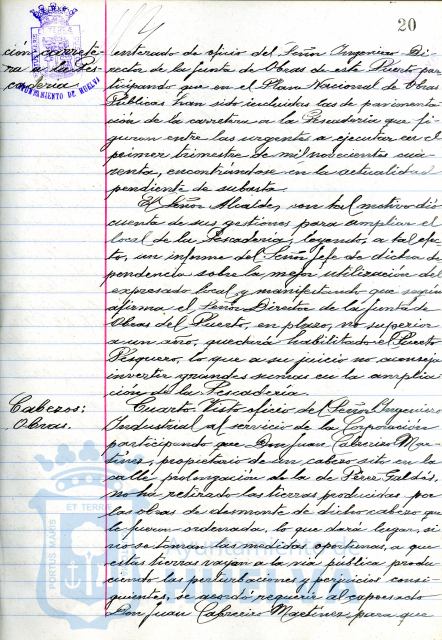 20
ción carrete-
ra a la Pes-
cadería.
AYUNTAMIENTO DE HUELVA
enterado de oficio del Señor Ingeniero Di-
rector de la Junta de Obras de este Puerto par-
ticipando que en el Plan Nacional de Obras
Públicas han sido incluidas las de pavimenta-
ción de la carretera a la Pescadería que fi-
guran entre las urgentes a ejecutar en el
primer trimestre de mil novecientos cua-
renta, encontrándose en la actualidad
pendiente de subasta.
El Señor Alcalde, con tal motivo dió
cuenta de sus gestiones para ampliar el
local de la Pescadería, leyendo, a tal efec-
to, un informe del Señor Jefe de dicha de-
pendencia sobre la mejor utilización del
expresado local y manifestando que según
afirma el Señor Director de la Junta de
Obras del Puerto, en plazo, no superior
a un año, quedará habilitado el Puerto
Pesquero, lo que a su juicio no aconseja
invertir grandes sumas en la amplia-
ción de la Pescadería.
Cabezos:
Obras.
Cuarto. Visto oficio del Señor Ingeniero
Industrial al servicio de la Corporación
participando que Don Juan Cabreriro Mar-
tínez, propietario de un cabezo sito en la
calle prolongación de la de Pérez Galdós,
no ha retirado las tierras producidas por
las obras de desmonte de dicho cabezo que
le fueron ordenada, lo que dará lugar, si
no se toman las medidas oportunas, a que
estas tierras vayan a la vía pública produ-
ciendo las perturbaciones y perjuicios consi-
guientes, se acordó requerir al expresado
Don Juan Cabreriro Martínez, para que
PORTUS MARIS ET TERRAE
Ayuntamiento de
HUELVA